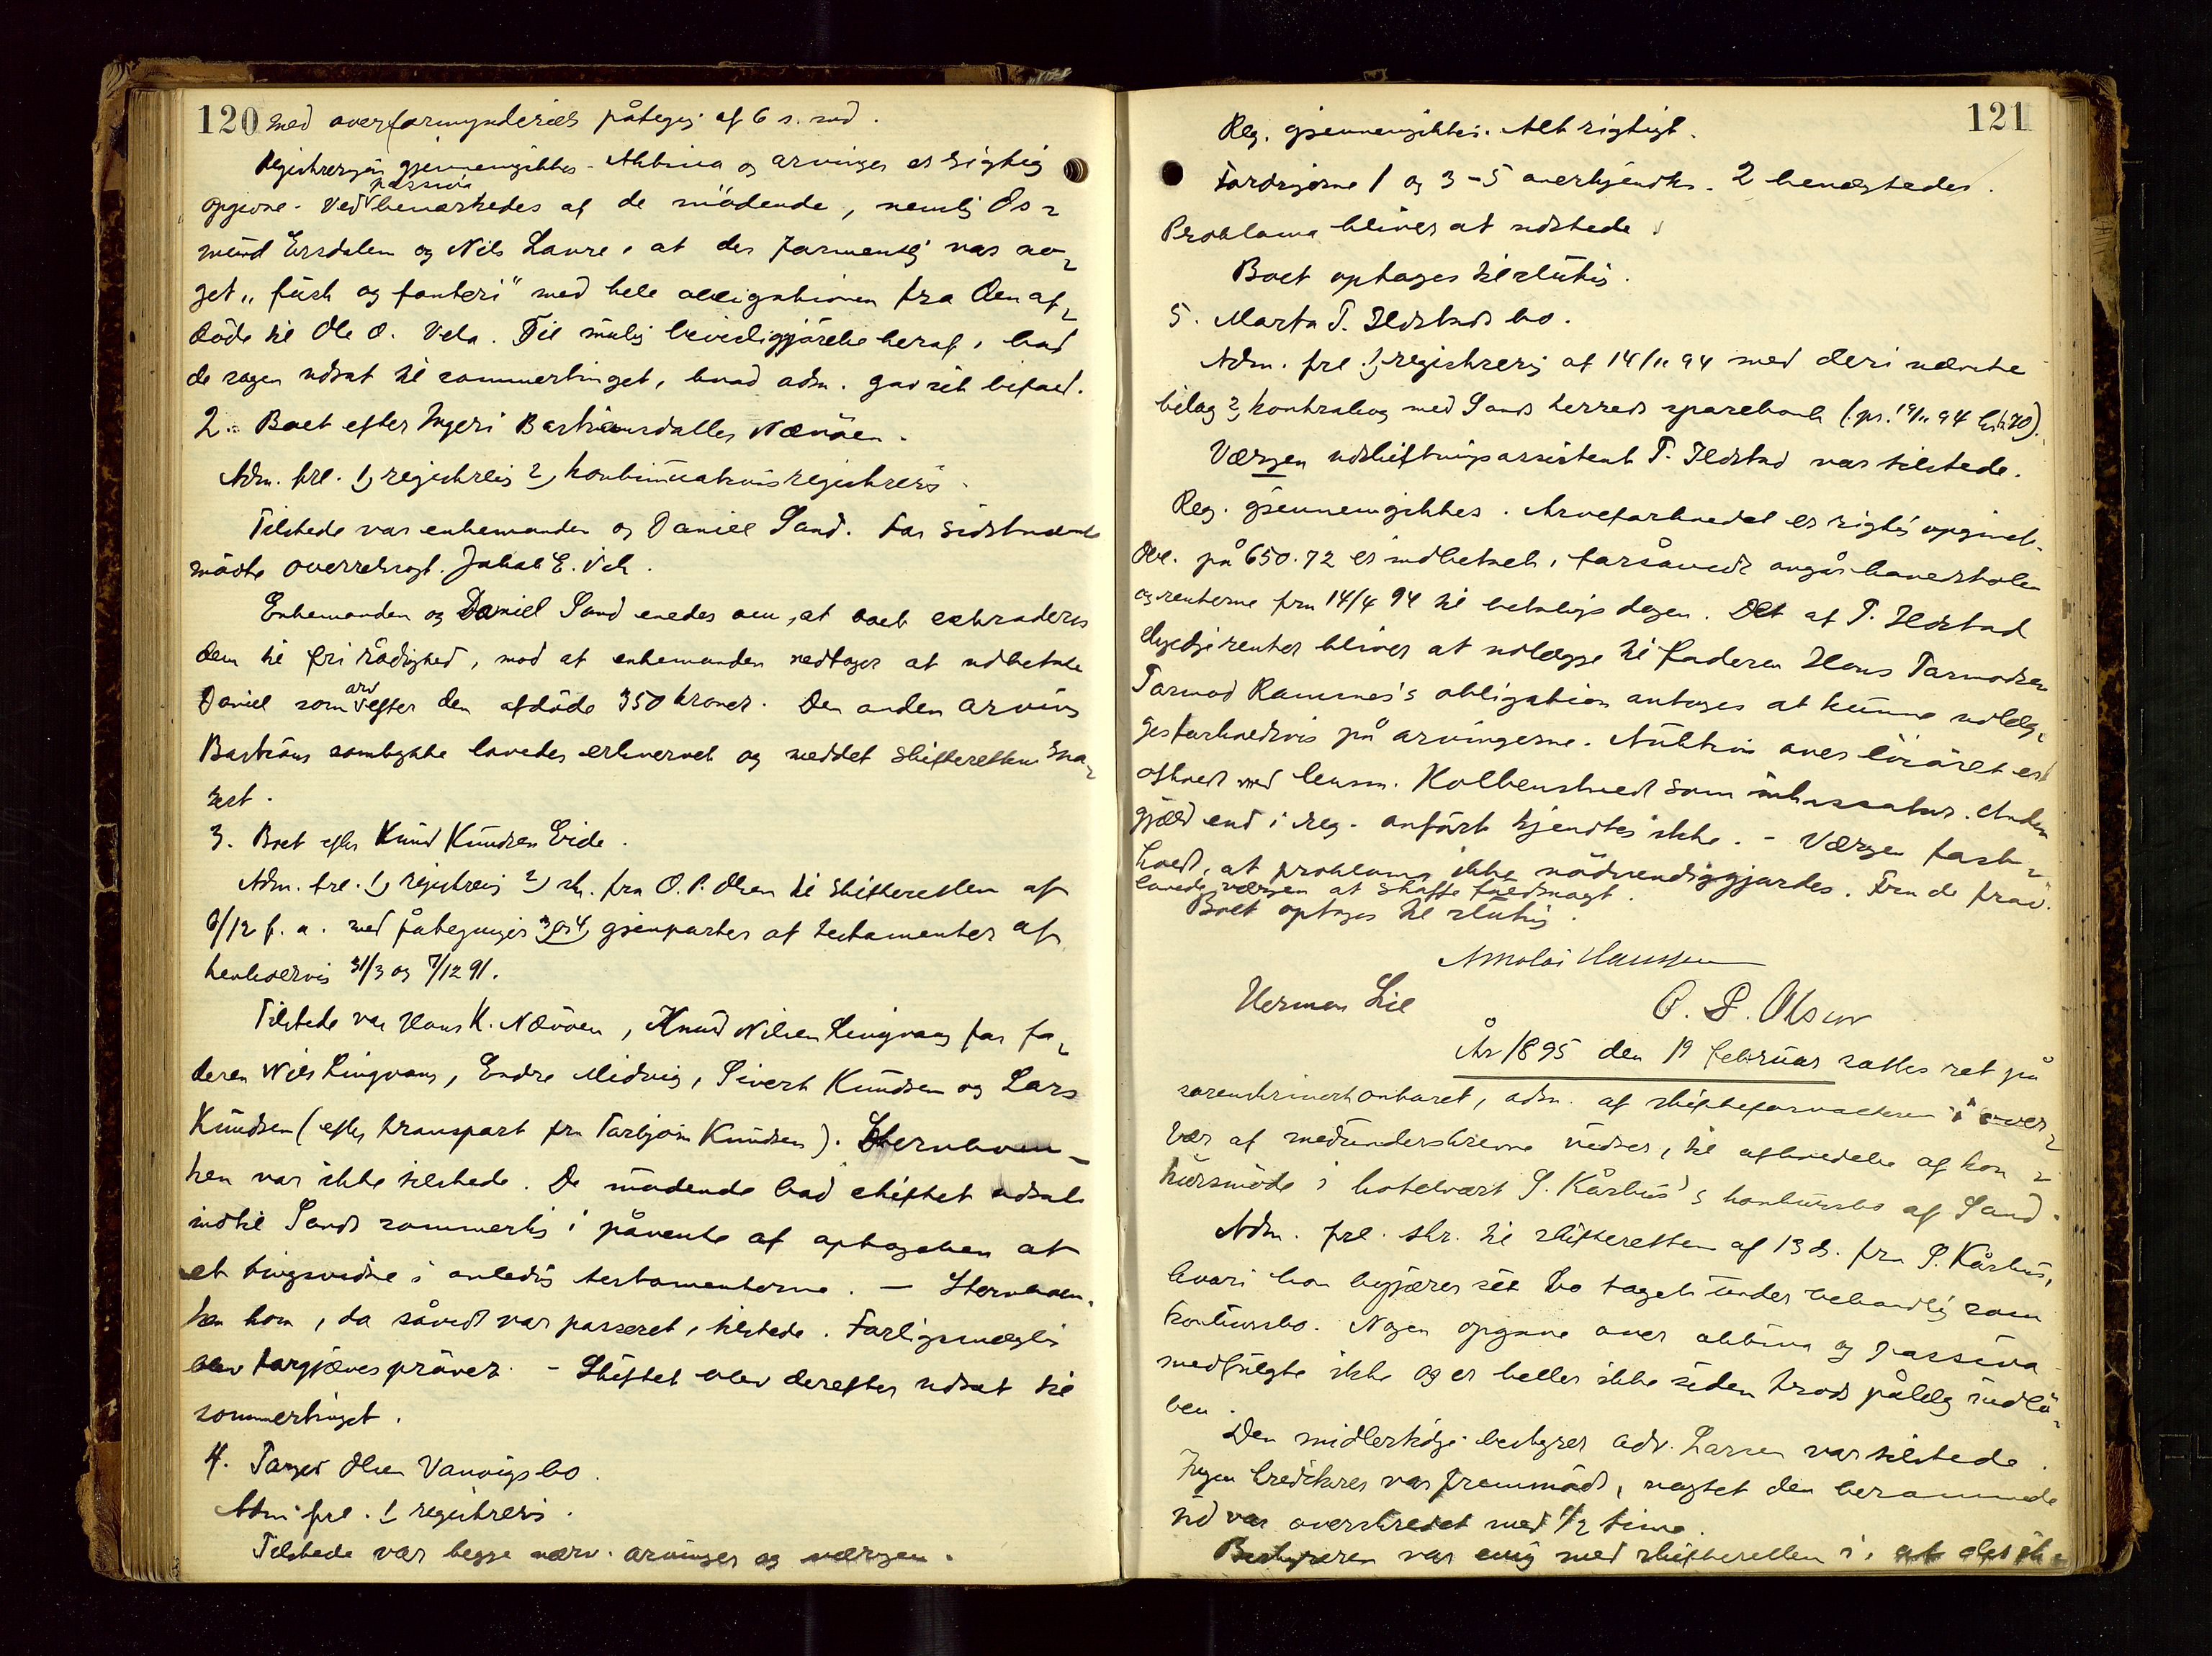 120 med overformynderiets påtegng af 6 s. md.
Registreringen gjennemgikkes. Aktiva og arvinger er rigtig
passiva
opgivne. Ved bemærkedes af de mödende, nemlig Os-
mund Ersdalen og Nils Lavre, at der formentlig var no-
get „fusk og fanteri" med hele obligationen fra den af-
döde til Ole O. Vela. Til mulig beviseliggjörelse heraf, bad
de sagen udsat til sommertinget, hvad adm. gav sit bifald.
2. Boet efter Ingeri Bastiansdatter Nævöen.
Adm. frl. 1) registrering 2) kontinuationsregistrering.
Tilstede var enkemanden og Daniel Sand. For sidstnævnte
mödte overretssagf. Jakob E. Vik.
Enkemanden og Daniel Sand enedes om, at boet extraderes
dem til fri rådighed, mod at enkemanden vedtager at udbetale
arv
Daniel som efter den afdöde 350 kroner. Den anden arving
Bastians samtykke lovedes erhvervet og meddelt skifteretten sna-
rest.
3. Boet efter Knud Knudsen Eide.
Adm. frl. 1) registrering 2) skr. fra O. P. Olsen til skifteretten af
6/12 f. a. med påtegninger 3 og 4) gjenparter af testamenter af
henholdsvis 31/3 og 7/12 91.
Tilstede var Hans K. Nævöen, Knud Nilsen Lingvang for fa-
deren Nils Lingvang, Endre Midvig, Sivert Knudsen og Lars
Knudsen (efter transport fra Torbjörn Knudsen). Stervboen-
ken var ikke tilstede. De mödende bad skiftet udsat
indtil Sands sommerting i påvente af optagelsen af
et tingsvidne i anledning testamenterne. — Stervboen-
ken kom, da såvidt var passeret, tilstede. Forligsmægling
blev forgjæves prövet. - Skiftet blev derefter udsat til
sommertinget.
4. Torger Olsen Vanvigs bo.
Adm. frl. 1) registrering.
Tilstede var begge nærv. arvinger og værgen.
121
Reg. gjennemgikkes. Alt rigtigt.
Fordringerne 1 og 3-5 anerkjendtes. 2 benægtedes.
Proklama bliver at udstede.
Boet optages til slutning.
5. Marta T. Ildstads bo.
Adm. frl. 1) registrering af 14/11 94 med deri nævnte
bilag 2) kontrabog med Sands herreds sparebank (pr. 19/11 94 70).
Værgen udskiftningsassistent T. Ildstad var tilstede.
Reg. gjennemgikkes. Arveforholdet er rigtig opgivet.
Obl. på 650.72 er indbetalt, forsåvidt angår hovedstolen
og renterne fra 14/4 94 til betalingsdagen. Det af T. Ildstad
renter bliver at udlægge til faderen Hans Tormodsen
Tormod Ramsnes's obligation antages at kunne udlæg-
ges forholdsvis på arvingerne. Auktion over er
afholdt med lensm. Kolbenstvedt som inkassator. Anden
gjæld end i reg. anfört kjendtes ikke. - Værgen fast-
holdt, at proklama ikke nödvendiggjordes. Fra de frav.
lovede værgen at skaffe fuldmagt.
Boet optages til slutning.
Nikolai Hanssen
Herman Lie O. P. Olsen
År 1895 den 19 februar sattes ret på
sorenskriverkontoret, adm. af skifteforvalteren i over-
vær af medunderskrevne vidner, til afholdelse af kon-
kursmöde i hotelvært S. Kårhus's konkursbo af Sand.
Adm. frl. skr. til skifteretten af 13 ds. fra S. Kårhus,
hvori han begjærer sit bo taget under behandling som
konkursbo. Nogen opgave over aktiva og passiva
medfulgte ikke og er heller ikke siden trods pålæg indlö-
ben.
Den midlertidige bestyrer adv. Larsen var tilstede.
Ingen kreditorer var fremmödt, uagtet den berammede
tid var overskredet med 1/2 time.
Bestyreren var enig med skifteretten i, at det ik-